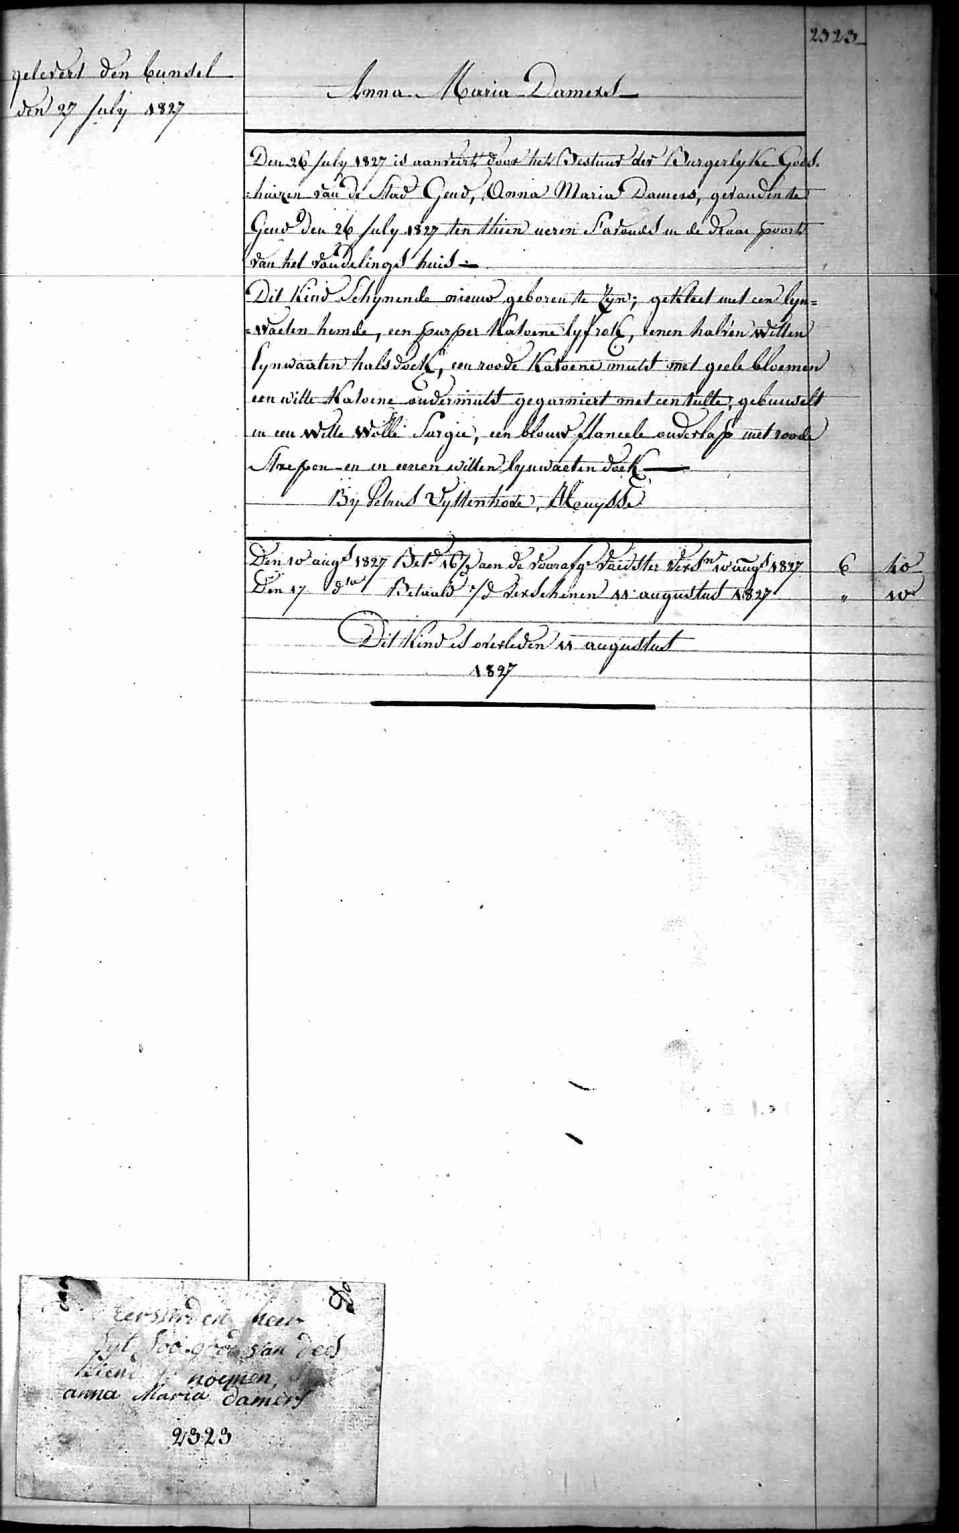 2323
gelevert den bunsel
den 27 july 1827
Anna Maria Damers
Den 26 July 1827 is aanveirt door het Bestuur der Burgerlyke Gods-
=huizen van de Stad Gend, Anna Maria Damers, gevonden te
Gend den 26 July 1827 ten thien ueren S'avonds in de draai poort
van het vondelings huis =
Dit Kind Schynende nieuw geboren te Zyn; gekleet met een lyn=
=waeten hemde, een purper Katoene lyfrok, eenen halven witten
lynwaaten halsdoek, een roode Katoene muts met geele bloemen
een witte Katoene ondermuts gegarniert met een tulle; gebuuselt
in een Witte Wolle Sargie, een blauw flaneele onderlap met roode
Strepen en in eenen witten lynwaeten doek
By Petrus Uyttenhode, Aleuysse
Den 10 augs 1827 Bet. 16/d aen de voorafge voedster versn 10 augs 1827 6 40
Den 17 do Betaald 1/d verschenen 11 augustus 1827 " 10
Dit Kind is overleden 11 augustus
1827
heer
Syt soo goed van dees
kiend te noemen
anna Maria damers
2323